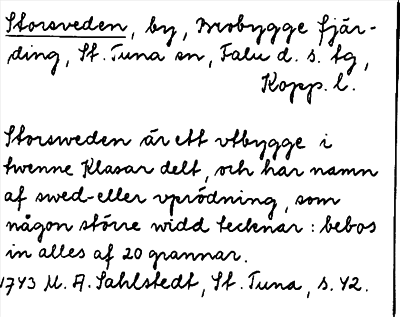 Storsveden, by, Brobygge fjär-
ding, St. Tuna sn, Falu d. s. tg,
Kopp. l.
Storsweden är ett vtbygge i
twenne Klasar delt, och har namn
af swed- eller vprödning, som
någon större widd tecknar: bebos
in alles af 20 grannar.
1743 U. A. Sahlstedt, St. Tuna, s. 42.